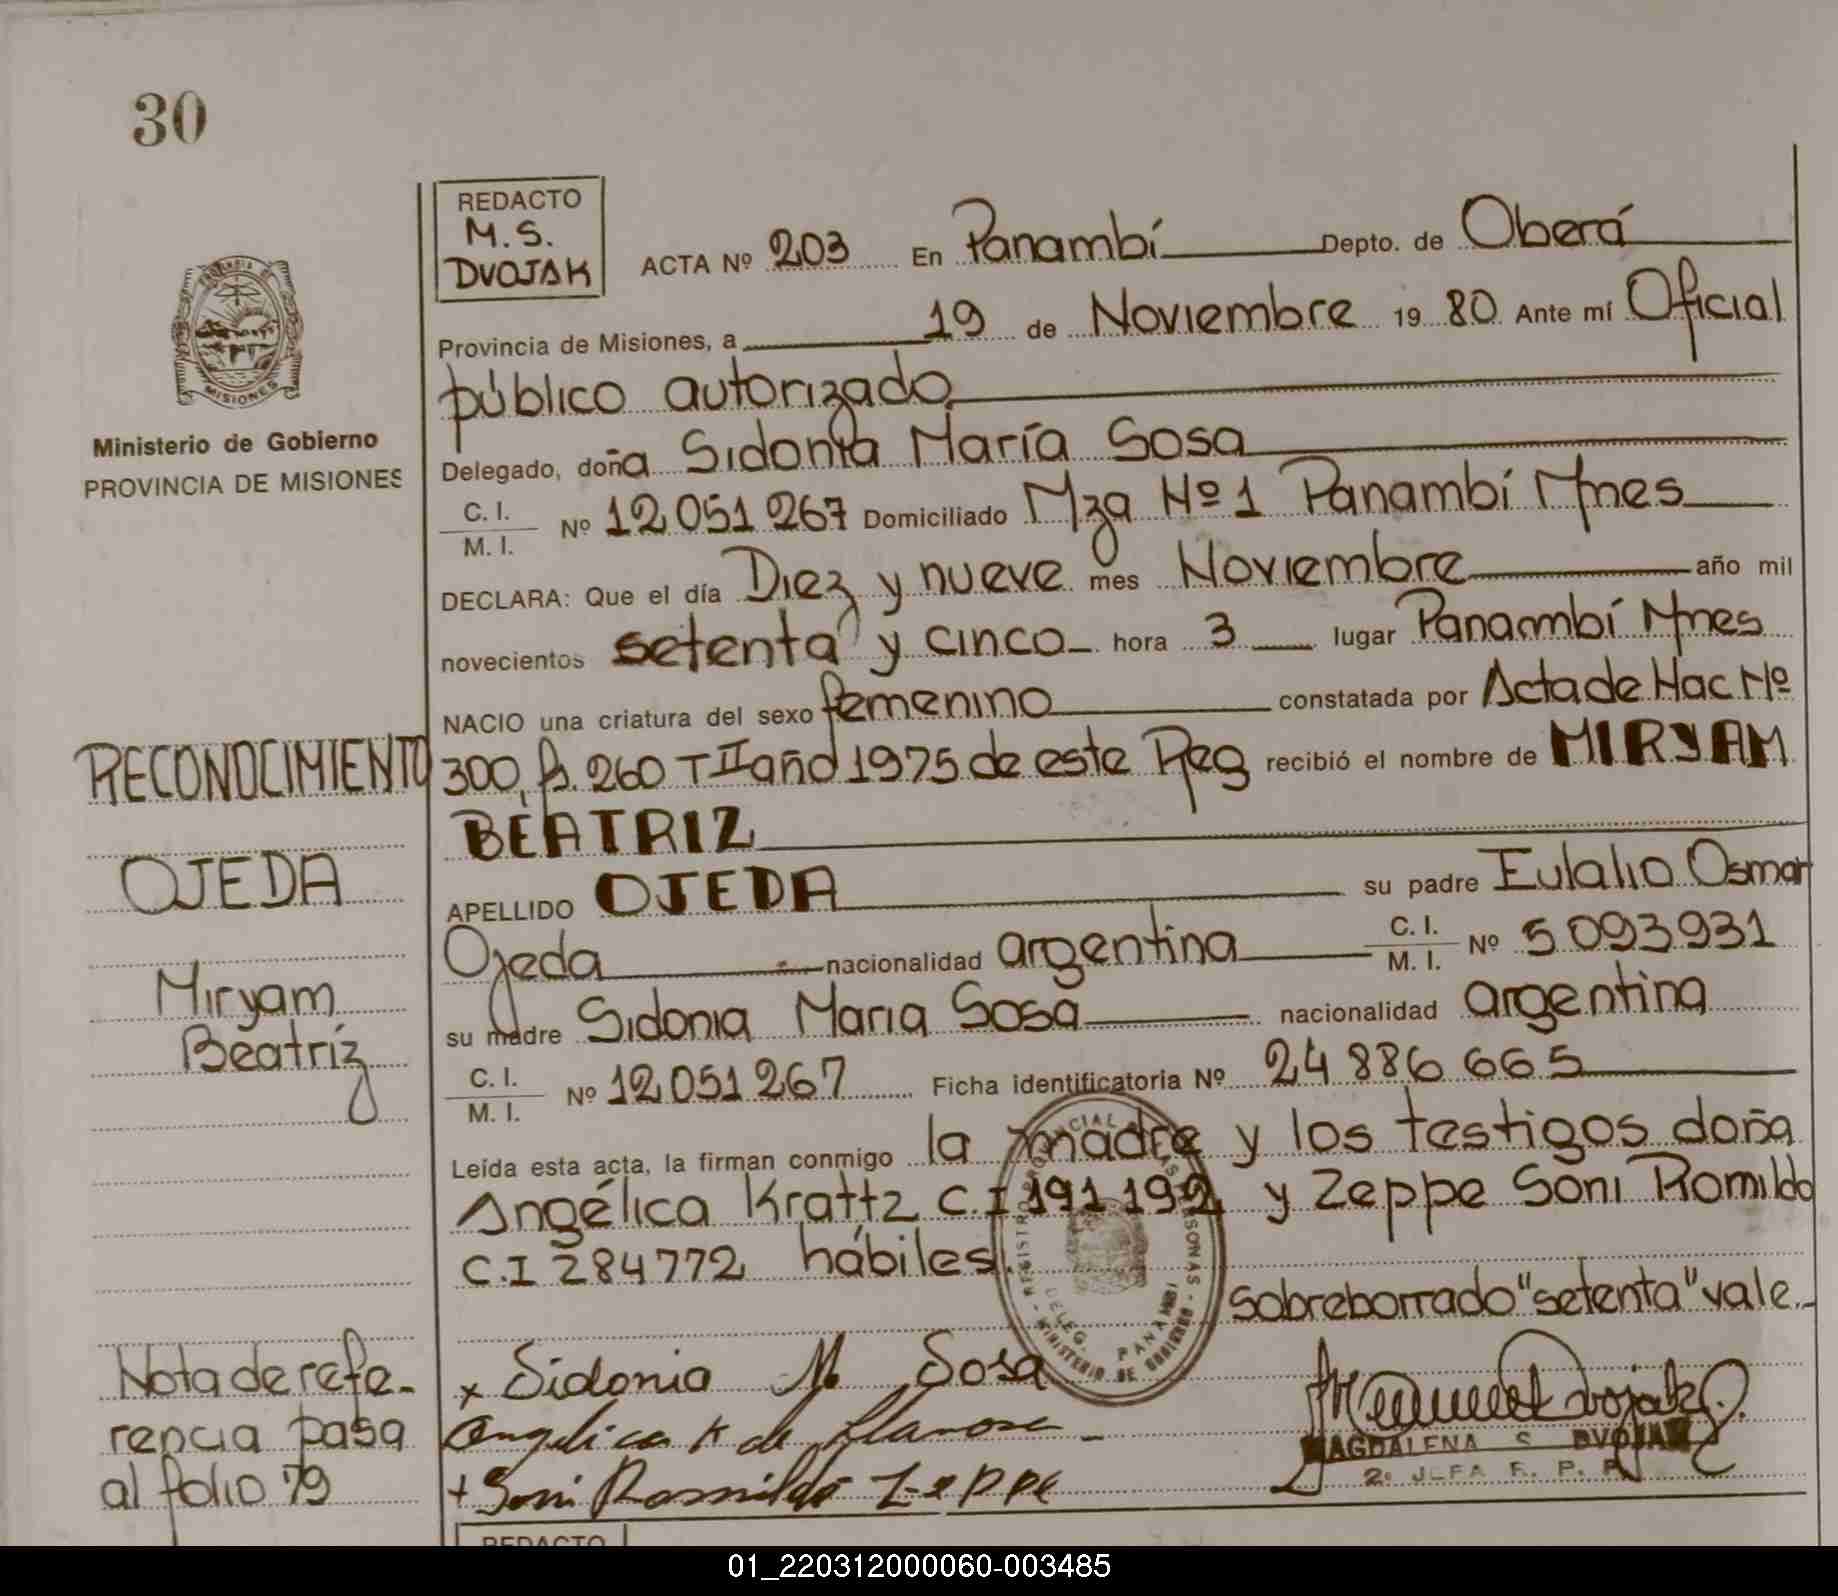 30
REDACTO
M.S.
DVOJAK
ACTA Nº 203 En Panambí Depto. de Oberá
Provincia de Misiones, a 19 de Noviembre 19 80 Ante mí Oficial
público autorizado
Delegado, doña Sidonia María Sosa
C. I.
M. I.
Nº 12 051 267 Domiciliado Mza Nº 1 Panambí Mnes
DECLARA: Que el día Diez y nueve mes Noviembre año mil
novecientos setenta y cinco hora 3 lugar Panambí Mnes
NACIO una criatura del sexo femenino constatada por Acta de Nac Nº
300, fs. 260 T II año 1975 de este Reg recibió el nombre de MIRYAM
BEATRIZ
APELLIDO OJEDA su padre Eulalio Osmar
Ojeda nacionalidad argentina C. I. M. I. Nº 5 093 931
su madre Sidonia Maria Sosa nacionalidad argentina
C. I.
M. I.
Nº 12 051 267 Ficha identificatoria Nº 24 886 665
Leída esta acta, la firman conmigo la madre y los testigos doña
Angélica Krattz C.I 191 192 y Zeppe Soni Romildo
C.I 284772 hábiles.
sobreborrado "setenta" vale.
x Sidonia M. Sosa
Angelica K de
+ Soni Romildo Zeppe
MAGDALENA S DVOJAK
2º JEFA R. P. P.
PROVINCIA DE
MISIONES
Ministerio de Gobierno
PROVINCIA DE MISIONES
RECONOCIMIENTO
OJEDA
Miryam
Beatríz
Nota de refe-
rencia pasa
al folio 79
REGISTRO PROVINCIAL DE LAS PERSONAS
DELEG. PANAMBI
MINISTERIO DE GOBIERNO
REDACTO
01_220312000060-003485